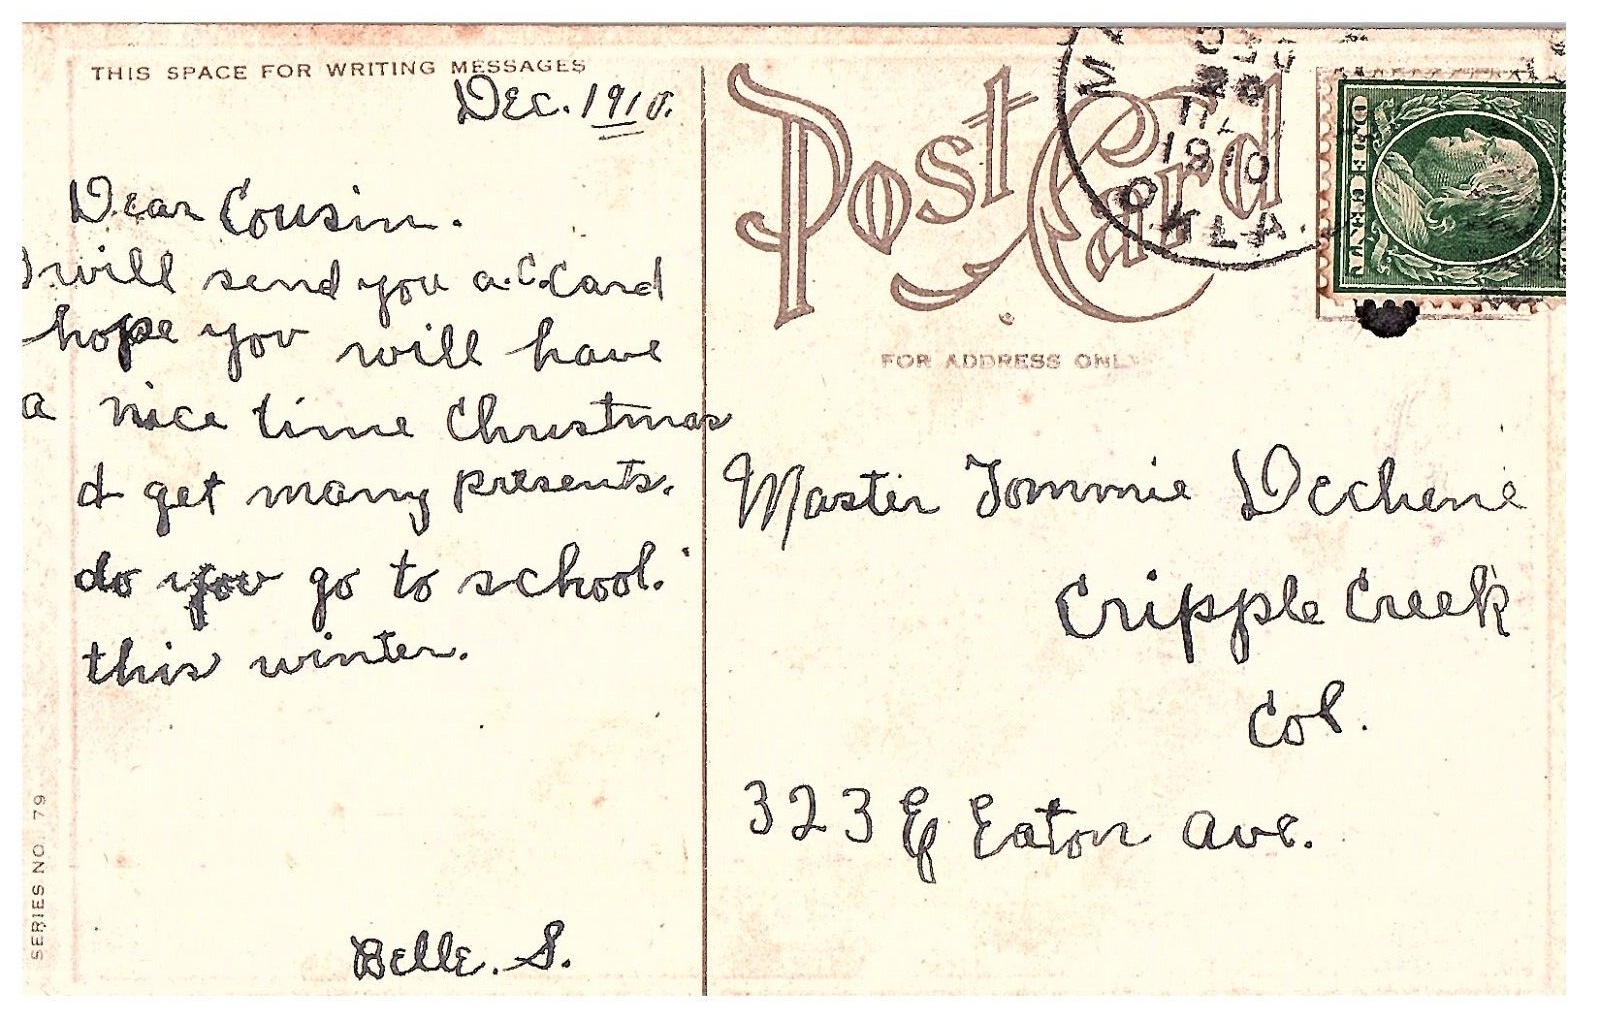 THIS SPACE FOR WRITING MESSAGES
Dec. 1910.
Dear Cousin.
I will send you a.C.Card
hope you will have
a nice time Christmas
& get many presents.
do you go to school.
this winter.
Belle. S.
SERIES NO. 79
Post Card
1910
OKLA.
ONE CENT
FOR ADDRESS ONLY
Master Tommie Dechene
Cripple Creek
Col.
323 E Eaton Ave.